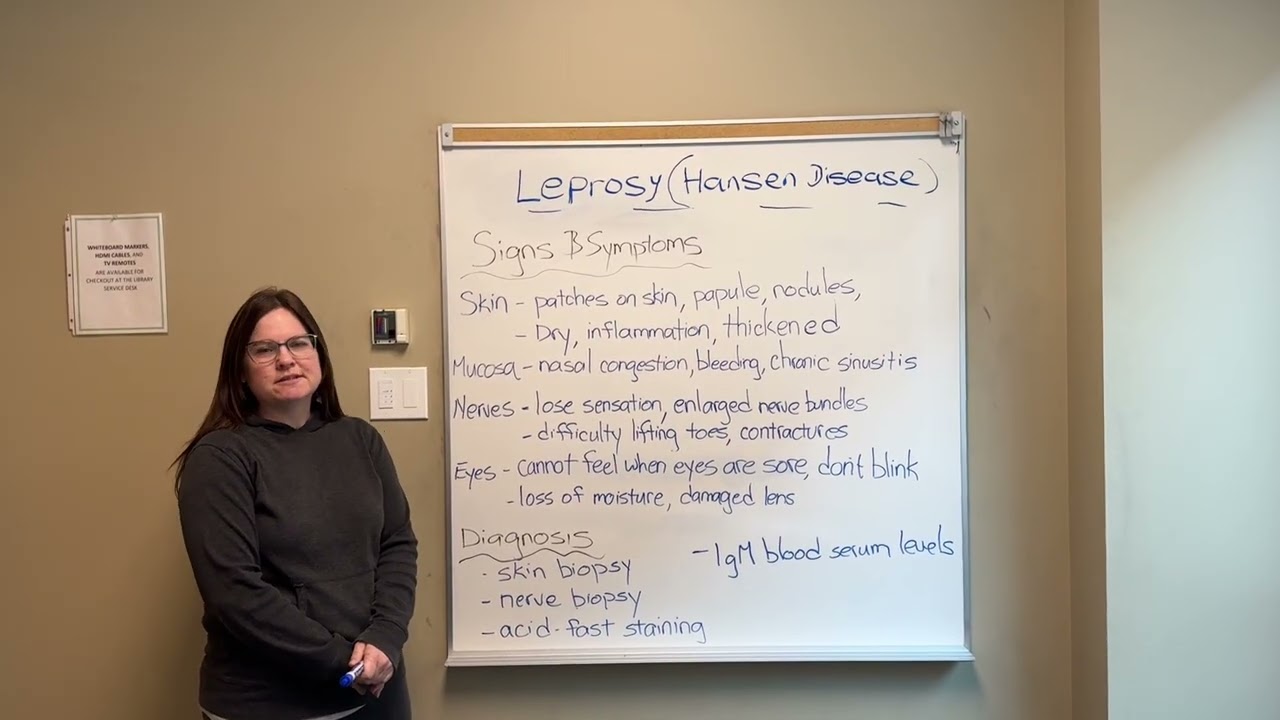 Leprosy (Hansen Disease)
Signs & Symptoms
Skin - patches on skin, papule, nodules,
- Dry, inflammation, thickened
Mucosa - nasal congestion, bleeding, chronic sinusitis
Nerves - lose sensation, enlarged nerve bundles
- difficulty lifting toes, contractures
Eyes - cannot feel when eyes are sore, don't blink
- loss of moisture, damaged lens
Diagnosis
- skin biopsy
- nerve biopsy
- acid-fast staining
- IgM blood serum levels
WHITEBOARD MARKERS,
HDMI CABLES, AND
TV REMOTES
ARE AVAILABLE FOR
CHECKOUT AT THE LIBRARY
SERVICE DESK